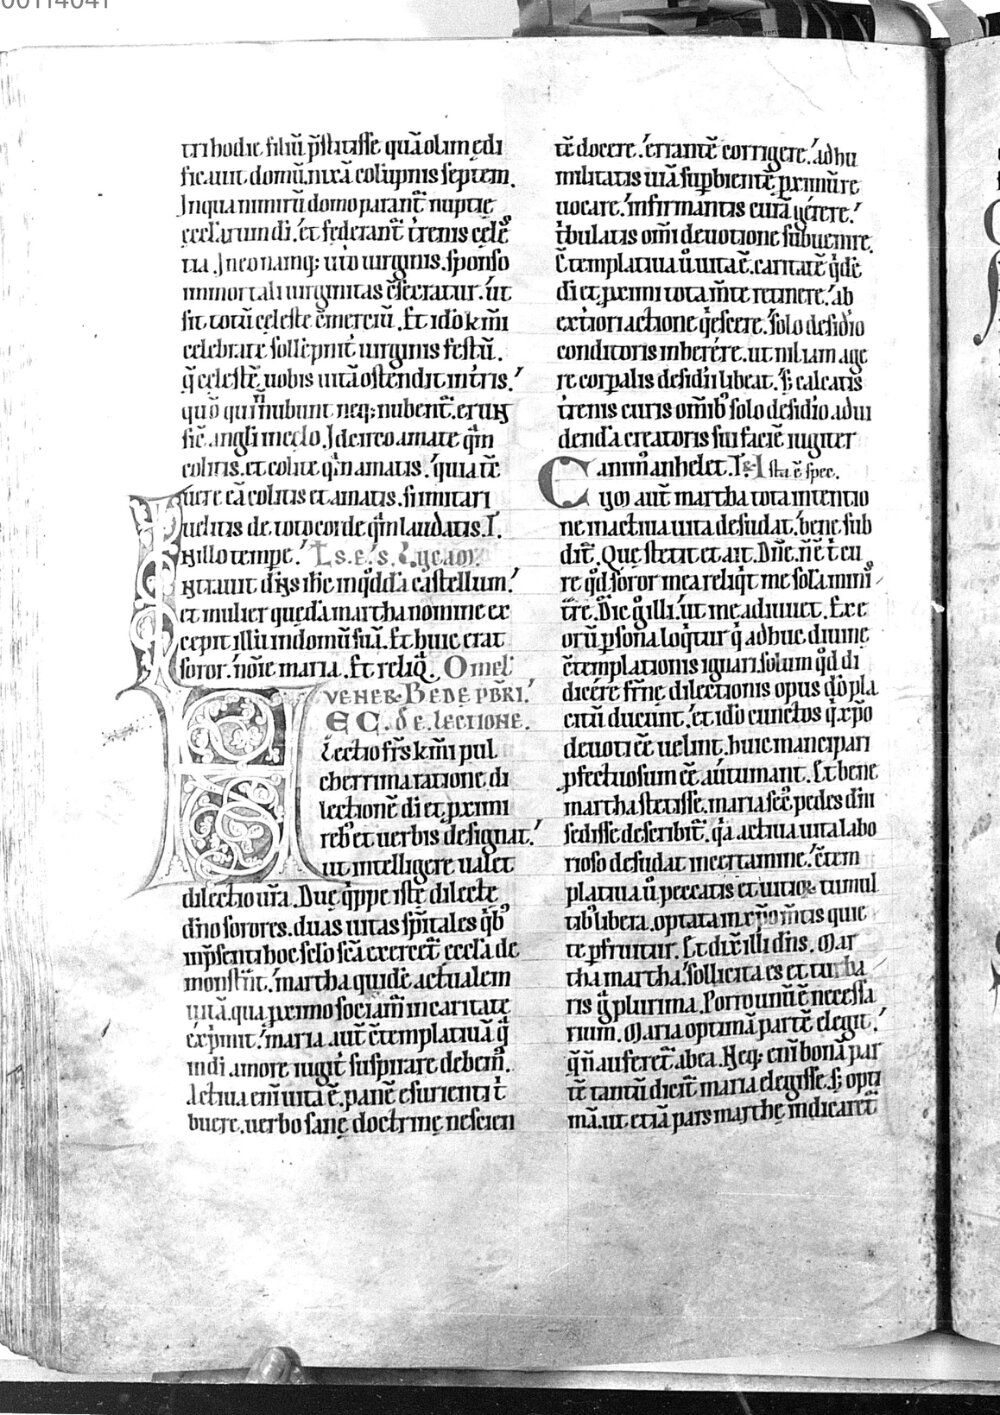 00114041
tri hodie filiū p̄stitisse quā olim ędi
ficauit domū. nixā colūpnis septem.
In qua nimirū domo parant̄ nuptie
ecclārum di. et fęderant̄ t̄renis cęlē
tia. In eo namq; uīo uirginis. sponso
inmortali uirginitas cōsecratur. ut
fit totū cęleste cōmerciū. Et idō km̄i
celebrate sollēpnit̄ uirginis festū.
q̄ cęlestē uobis uitā ostendit in t̄ris.
quō qui n̄ nubunt neq; nubent̄. erunt
sic̄ angli in cęlo. Idcirco amate q̄m
colitis. et colite q̄m amatis. quia tc̄
uere eā colitis et amatis. si imitari
uelitis de toto corde q̄m laudatis. I
n illo tempe. Ł. s. e. s. Lucam.
Intrauit dn̄s ihc in q̄ddā castellum.
et mulier quedā martha nomine ex
cepit illū in domū suā. Et huic erat
soror. nōie maria. Et reliq̄. Omel̄
VENER. BEDE PBR̄I.
EC. de. lectione.
Lectio fr̄s km̄i pul
cherrima ratione di
lectionē di et pximi
reb; et uerbis designat.
ut intelligere ualet
dilectio ur̄a. Duę q̄ppe istę dilectę
dn̄o sorores. duas uitas sp̄itales q̄b;
in p̄senti hoc sclō scā exercet̄ ecclā de
monstn̄t. martha quidē actualem
uitā. qua pximo sociam̄ in caritate
exp̄imit. maria aut̄ cōtemplatiuā q̄
in di amore iugit̄ suspirare debem̄.
Actiua eni uita ē. panē esurienti t̄
buere. uerbo sanę doctrinę nescien
tē docere. errantē corrigere. ad hu
militatis uiā supbientē pximū re
uocare. infirmantis curā gerere.
t̄bulatis om̄i deuotione subuenire.
Cōtemplatiua ū uita ē. caritatē q̄dē
di et pximi tota m̄te retinere. ab
ext̄iori actione q̄escere. solo desid̄io
conditoris inherere. ut nil iam age
re corpalis desid̄ii libeat. s; calcatis
t̄renis curis om̄ib; solo desid̄io ad ui
dendā creatoris sui faciē iugiter
anim̄ anhelet. Ista ē spec.
Cum aut martha tota intentio
ne in actiua uita desudat. bene sub
dit̄. Que stetit et ait. Dn̄e. n̄ ē t̄ cu
re q̄d soror mea reliq̄t me solā mini
t̄re. Dic g̊ illi. ut me adiuuet. Ex e
orū psona loq̄tur q̄ adhuc diuinę
cōtemplationis ignari. solum q̄d di
dicere fr̄nę dilectionis opus dō pla
citū ducunt. et idō cunctos q̄ xp̄o
deuoti ēē uelint. huic mancipari
pfectuosum ēē autumant. Et bene
martha stetisse. maria sec̄. pedes dn̄i
sedisse describit̄. q̄a actiua uita labo
rioso desudat in certamine. cōtem
platiua ū peccatis et uitiox̄ tumul
tib; libera. optata in xp̄o m̄tis quie
te pfruitur. Et dix̄ illi dn̄s. Mar
tha martha. sollicita es et turba
ris g̊ plurima. Porro unū ē necessa
rium. Maria optimā partē elegit.
q̄ n̄ auferet̄ ab ea. Neq; eni bonā par
tē tantū dicit̄ maria elegisse. s; opti
mā. ut etiā pars marthę indicaret̄